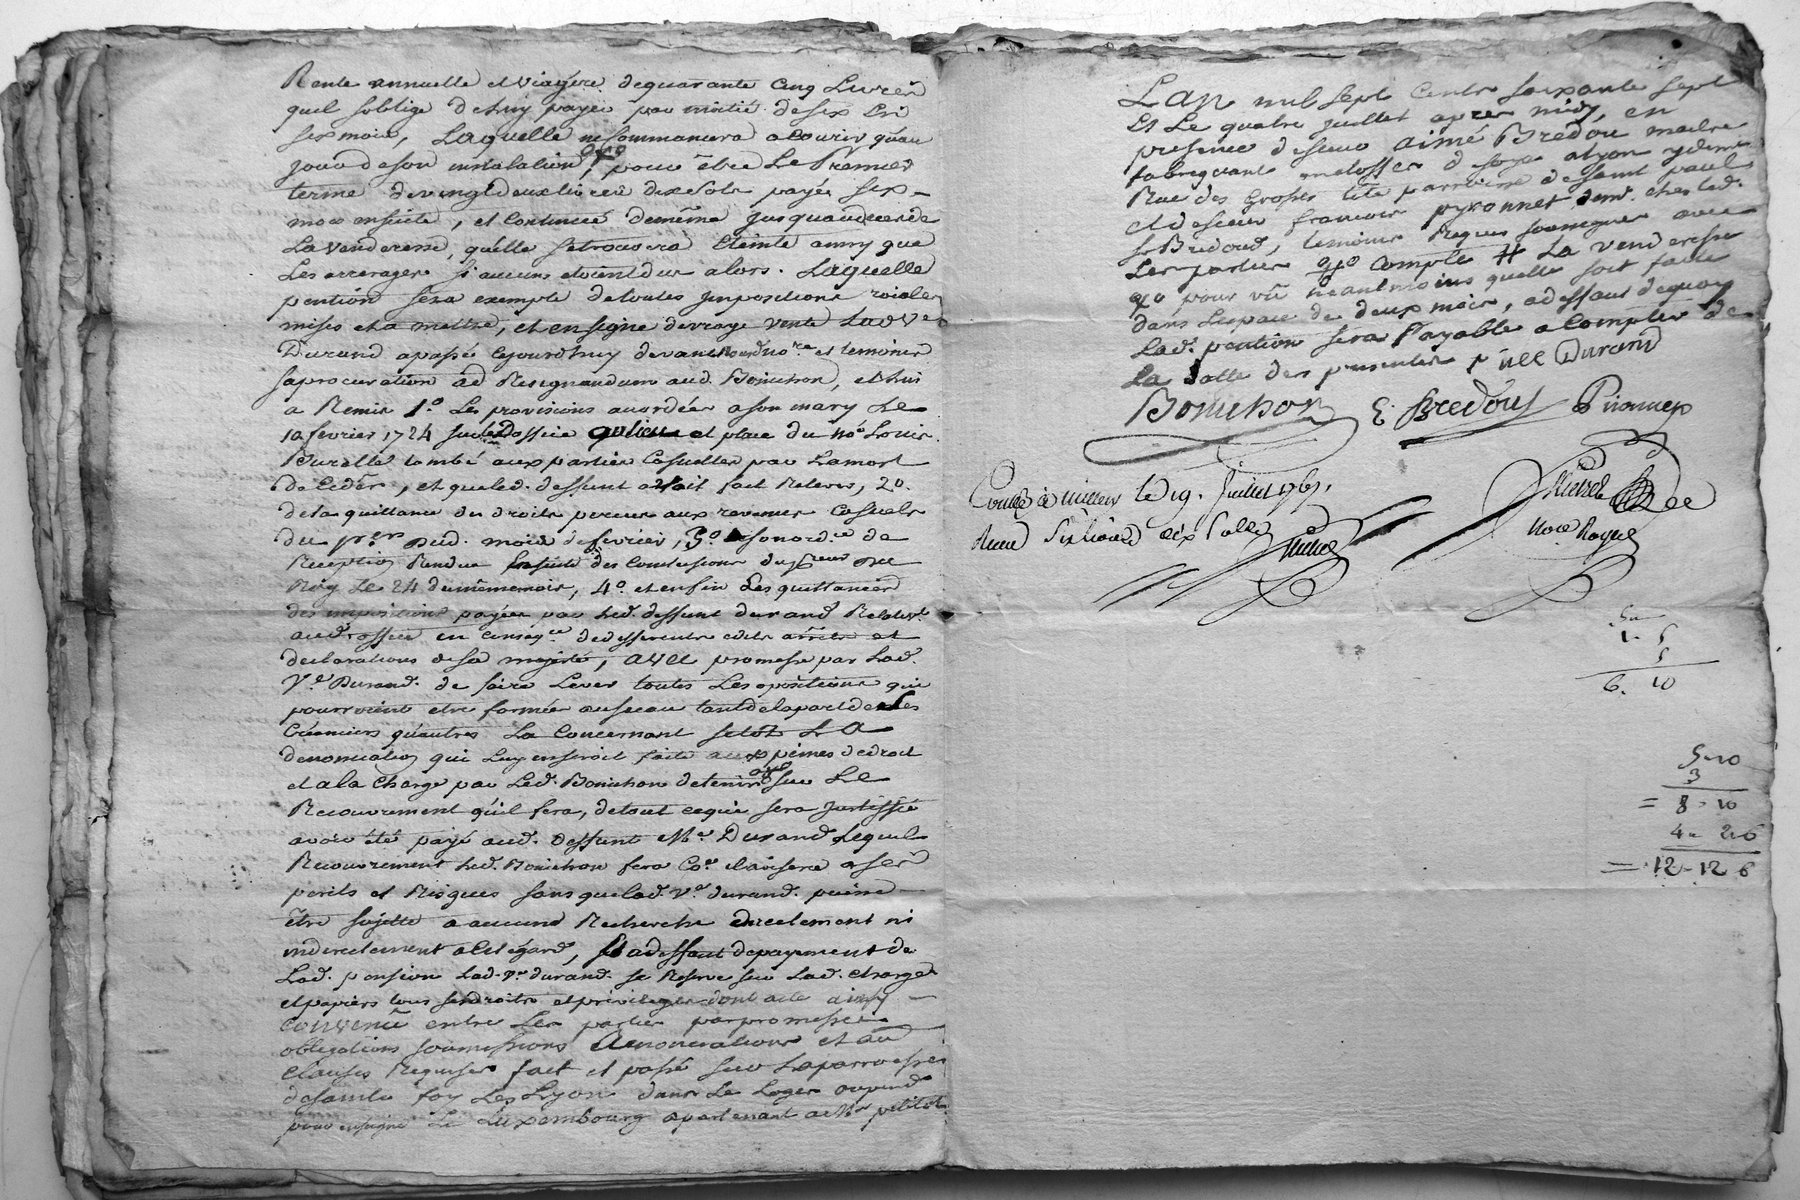 Rente annuelle et viagere de quarante cinq Livres
quil soblige de luy payer par moitié de six en
six mois, Laquelle ne commancera a courir qu'au
jour de son instalation, pour être Le Premier
terme de vingt deux livres dix sols payée six
mois ensuite, et continué de même jusquau deces de
La venderesse, quelle se trouvera Eteinte ainsy que
Les arrerages si aucuns etoient dus alors. Laquelle
pention sera exempte de toutes jmpositions roiales
mises et a mettre, et en signe de vraye vente Lad ve
Durand a passé cejourdhuy devant no.re et temoins
sa procuration ad Resignandum aud. Bonichon, et lui
a Remis 1.o Les provisions accordées a son mary Le
10 fevrier 1724 sur Led office au lieu et place du no.e Louis
Buretté tombé aux parties Casuelles par La mort
de , et que led. deffunt avait fait Relever, 2.o
de la quittance du droits perceus aux revenus Casuels
du p.er dud. mois de fevrier, 3.o son ord.ce de
Reception Rendue Ensuite des Conclusions du
Roy Le 24 du même mois, 4.o et enfin Les quittances
des impositions payées par led. deffunt durand Relativ.t
aud office en conseq.ce de differents edits arrêts et
declarations de sa majesté, avec promesse par Lad.
V.e Durand. de faire Lever toutes Les opositions qui
pourroient etre formées au sceau tant de la part de ses
Créanciers qu'autres La Concernant selon La
denonciation qui Luy en seroit faite aux peines de droit
et a la Charge par Led. Bonichon de tenir sur Le
Recouvrement qu'il fera, de tout ce qui sera justiffié
avoir été payé aud. deffunt M.e Durand Lequel
Recouvrement led. Bonichon fera Co.e a ses
perils et Risques sans que lad. V.e durand. puisse
être sujette a aucune Recherche directement ni
indirectement a cet égard, Et a deffaut de payement de
Lad. pension Lad. v.e durand. se Reserve sur Lad. charge
et papiers tous ses droits et privileges dont acte ainsy
convenu entre Les parties par promesses
obligations soumissions Renonciations et au
Clauses Requises fait et passé sur La parroisse
de sainte foy Les Lyon dans Le Logis ayant
pour enseigne Le Luxembourg apartenant a M.r petitot
L'an mil sept Cents soixante sept
Et Le quatre juillet apres midy, en
presence de sieur aimé Bredou maitre
fabriquant en etoffes de soye a Lyon y dem.t
Rue des Grosses tête parroisse de Saint paul
et de sieur francois pyronnet dem.t chez led.
s.r Bredoud, temoins Requis soussignés avec
Les parties # La venderesse
pour vu neantmoins quelle soit faite
dans L'espace de deux mois, a deffaut de quoy
Lad. pention sera Payable a Compter de
La datte des presentes v.ve Durand
Bonichon E. Bredoux Pironnet
Controlé à le 19. Juillet 1767.
Reçu Six livres dix sols
No.re Royal
5
1. 5
5
6. 10
5-10
3
= 8-10
4- 2.6
= 12-12 6